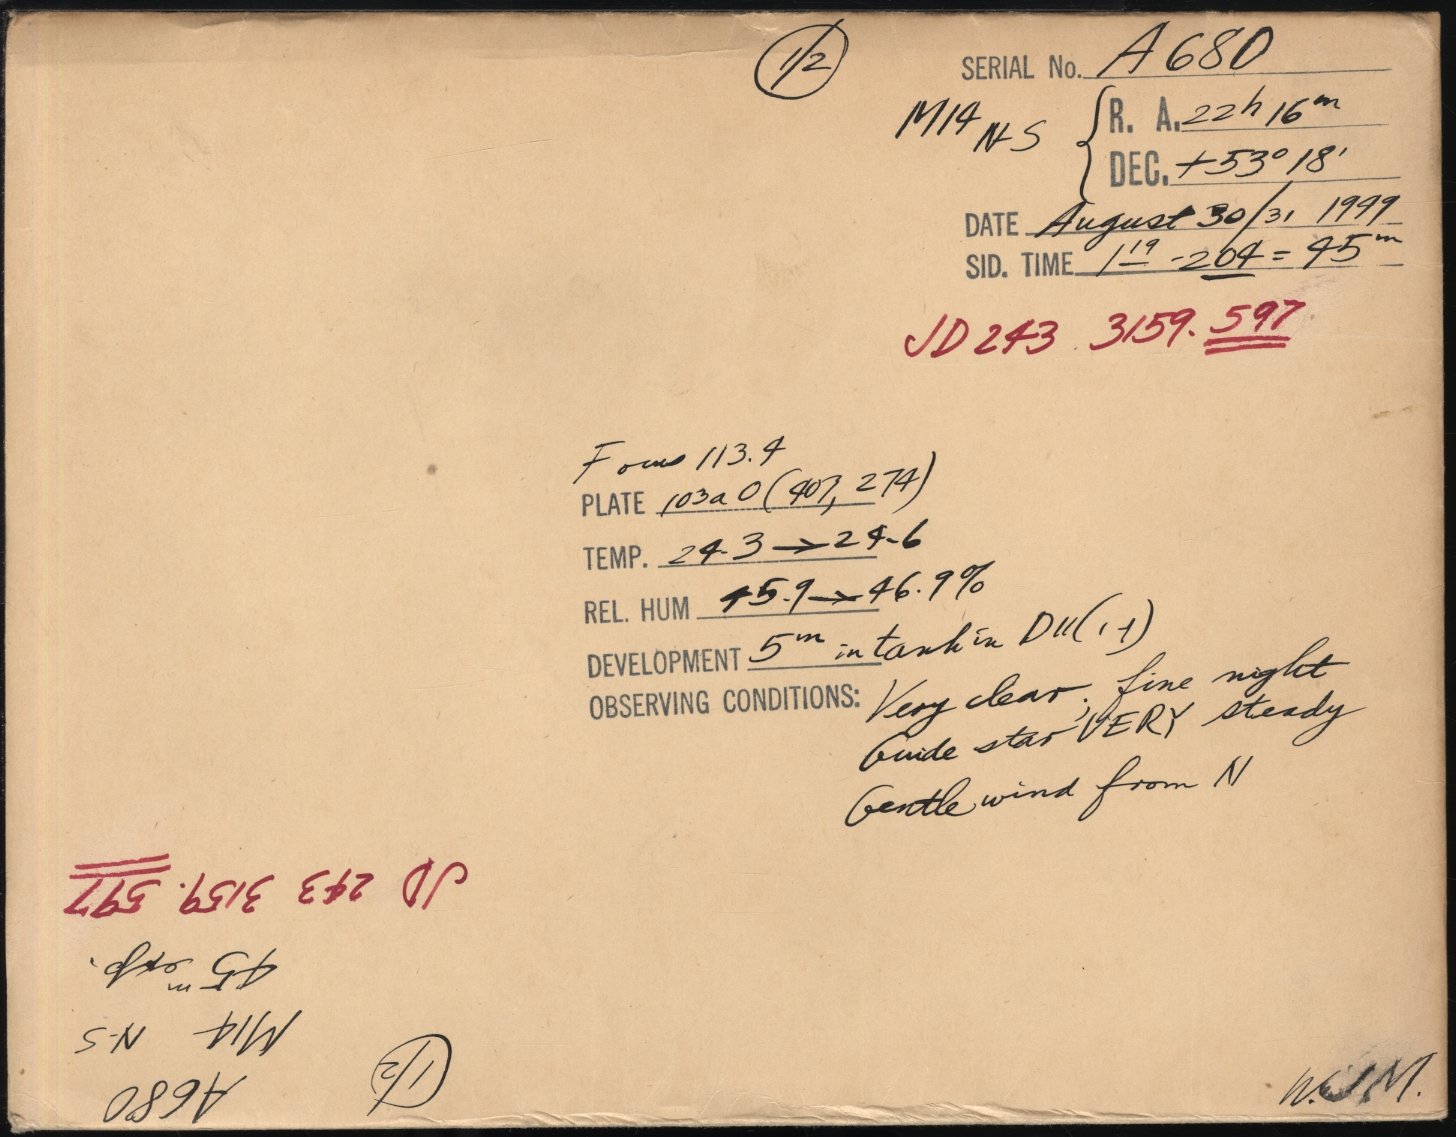 1/2
SERIAL No. A680
M14 N-S { R. A. 22h 16m
DEC. +53° 18'
DATE August 30/31 1949
SID. TIME 1 19 - 2 04 = 45m
JD 243 3159.597
Focus 113.4
PLATE 103a O (407, 274)
TEMP. 24.3 → 24.6
REL. HUM 45.9 → 46.9%
DEVELOPMENT 5m in tank in D11 (1-1)
OBSERVING CONDITIONS: Very clear, fine night
Guide star VERY steady
Gentle wind from N
W.J.M.
1/2
A680
M14 N-S
45m exp.
JD 243 3159.597